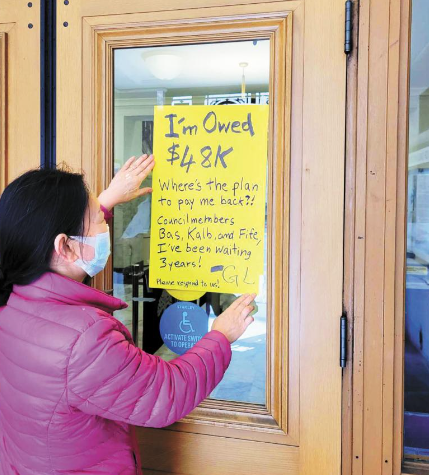 I'm Owed
$48K
Where's the plan
to pay me back?!
Councilmembers
Bas, Kalb, and Fife,
I've been waiting
3 years!
-GL
Please respond to us!
ACTIVATE SWITCH
TO OPERATE